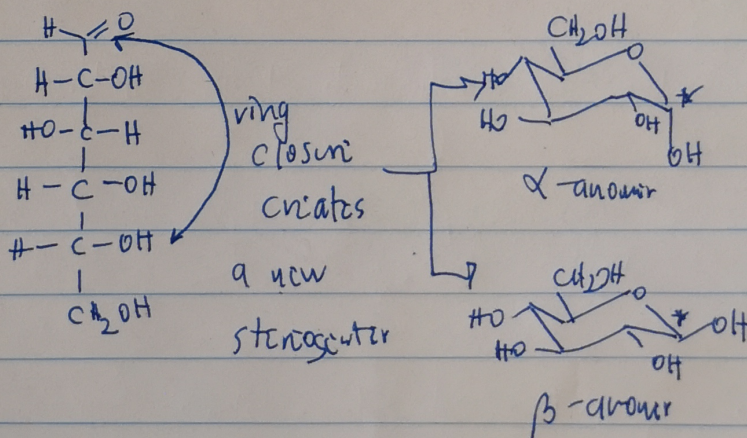 H O
H-C-OH
HO-C-H
H-C-OH
H-C-OH
CH₂OH
ring
closure
creates
a new
stereocenter
CH₂OH
O
HO
HO
OH
*
OH
α-anomer
CH₂OH
O
HO
HO
OH
*
OH
β-anomer